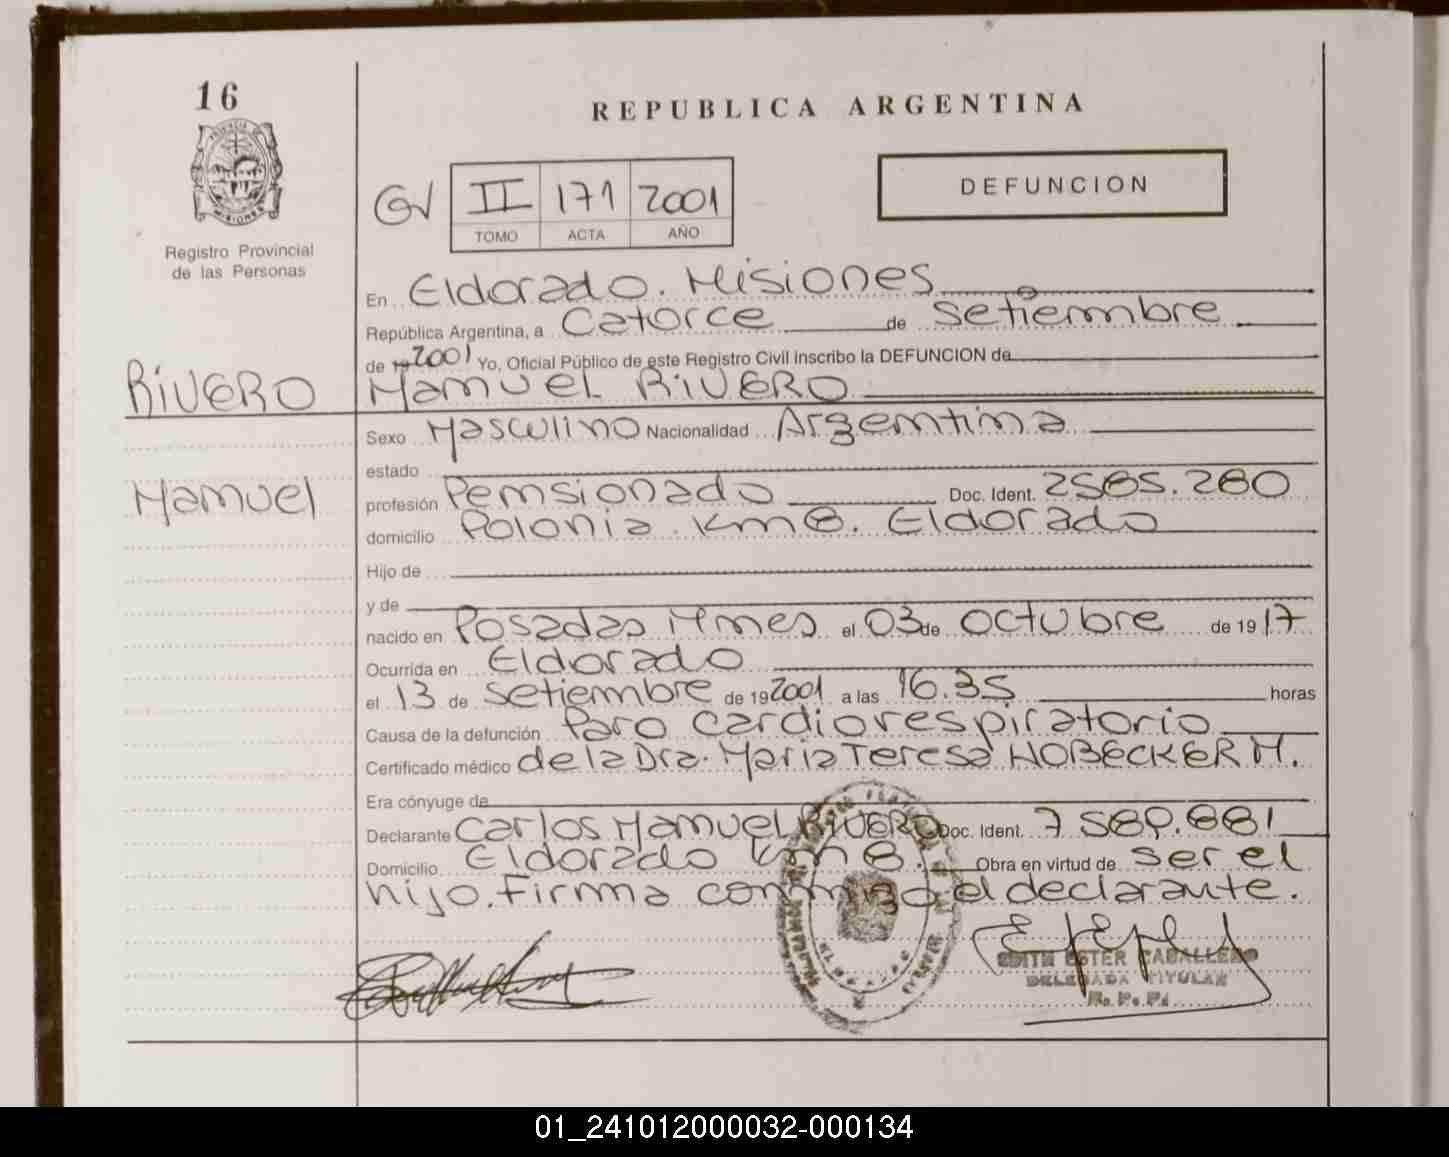 16
REPUBLICA ARGENTINA
PROVINCIA DE
MISIONES
Registro Provincial
de las Personas
GV II 171 2001
TOMO ACTA AÑO
DEFUNCION
En Eldorado. Misiones
República Argentina, a Catorce de setiembre
de 19 2001 Yo, Oficial Público de este Registro Civil inscribo la DEFUNCION de
RIVERO Manuel RIVERO
Sexo Masculino Nacionalidad Argentina
estado
Manuel profesión Pensionado Doc. Ident. 2585.280
domicilio Polonia Km 8. Eldorado
Hijo de
y de
nacido en Posadas Mnes el 03 de Octubre de 1917
Ocurrida en Eldorado
el 13 de setiembre de 19 2001 a las 16.35 horas
Causa de la defunción Paro cardiorespiratorio
Certificado médico de la Dra. Maria Teresa HOBECKER M.
Era cónyuge de
Declarante Carlos Manuel RIVERO Doc. Ident. 7.589.881
Domicilio Eldorado Km 8. Obra en virtud de ser el
hijo. Firma conmigo el declarante.
EDITH ESTER CABALLERO
DELEGADA TITULAR
R. P. P.
01_241012000032-000134